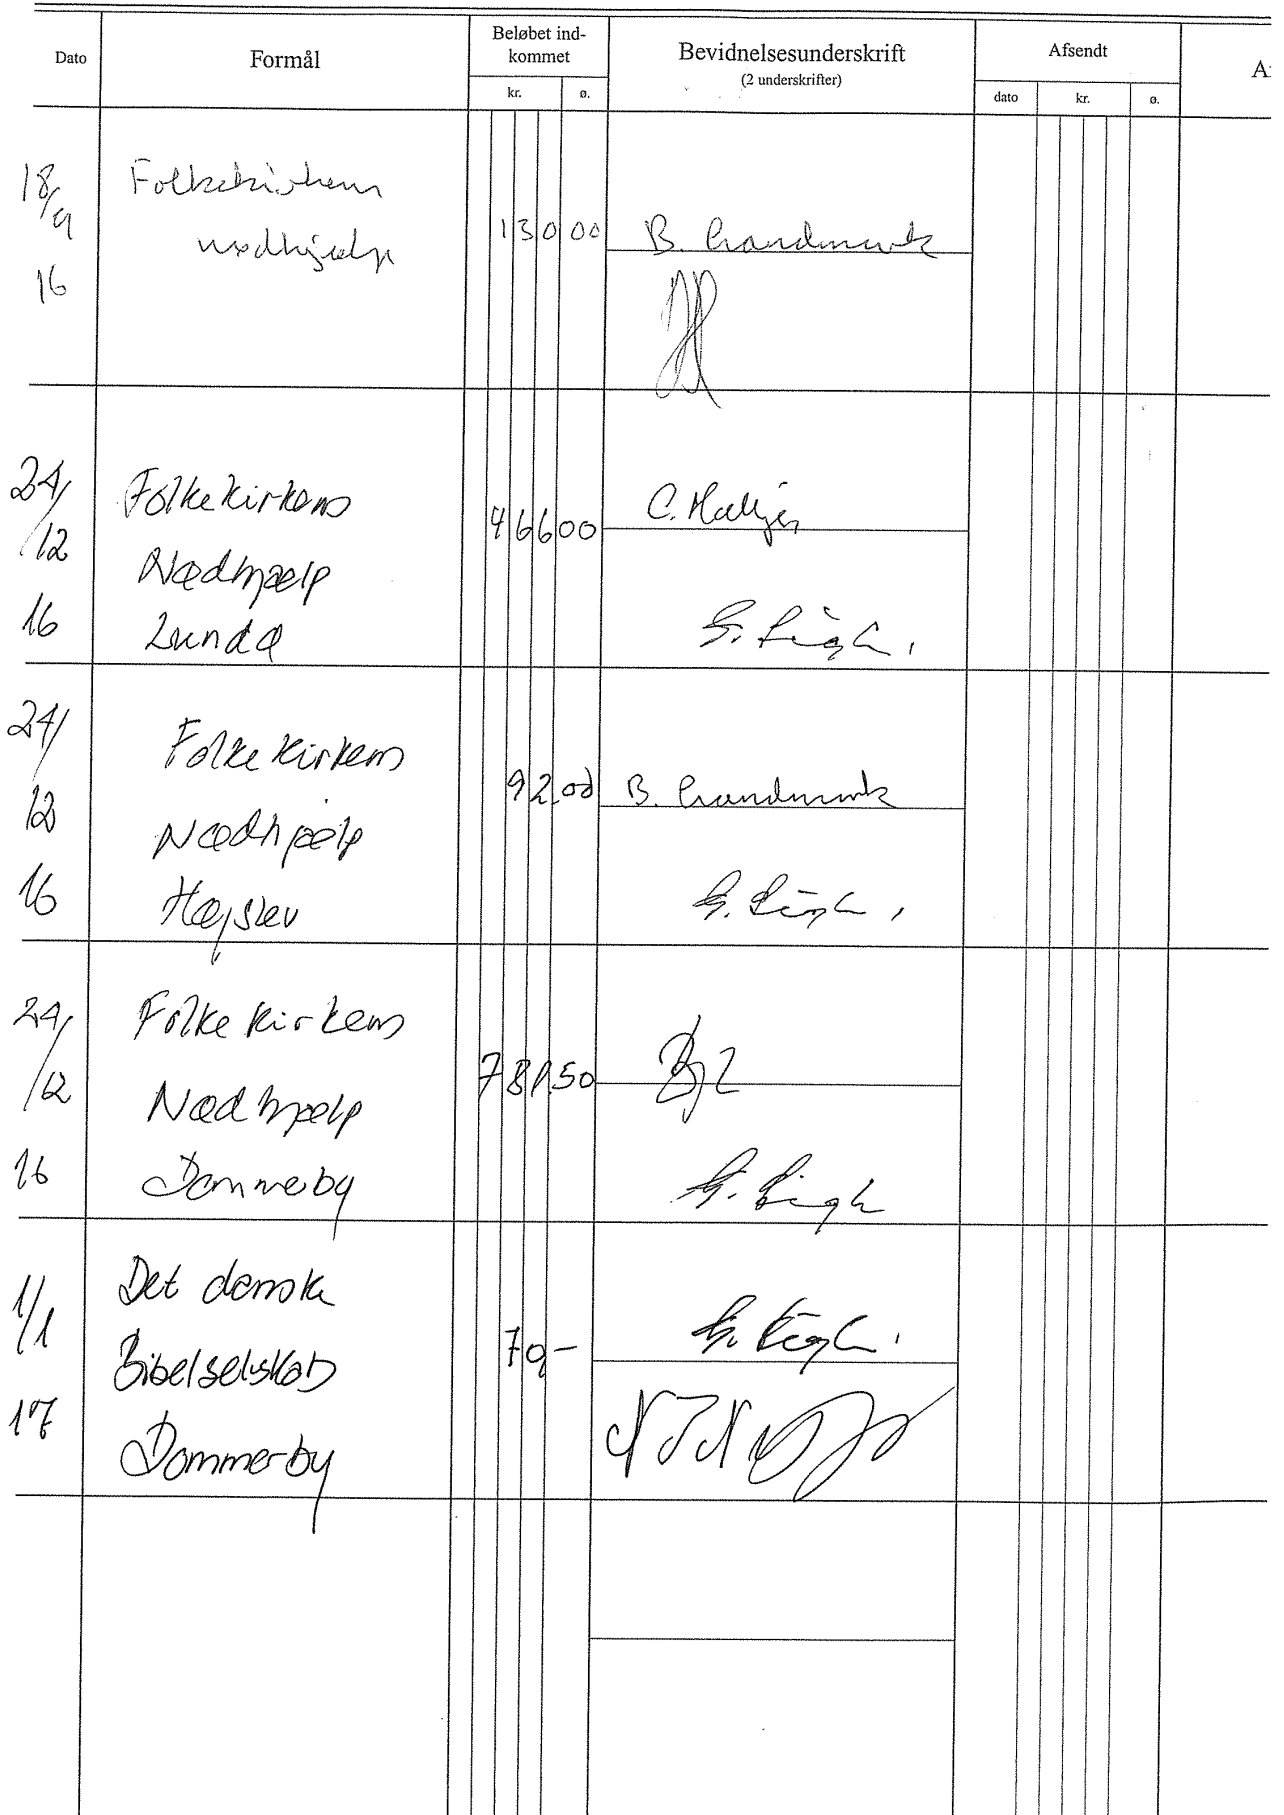 Dato
Formål
Beløbet ind-
kommet
kr. ø.
Bevidnelsesunderskrift
(2 underskrifter)
Afsendt
dato kr. ø.
18/9
16
Folkekirkens
nødhjælp
130 00
B.
24/12
16
Folkekirkens
Nødhjælp
Lundø
466 00
C.
G.
24/12
16
Folkekirkens
Nødhjælp
Højslev
92.00
B.
G.
24/12
16
Folkekirkens
Nødhjælp
Dommerby
781.50
G.
1/1
17
Det danske
Bibelselskab
Dommerby
70,-
G.